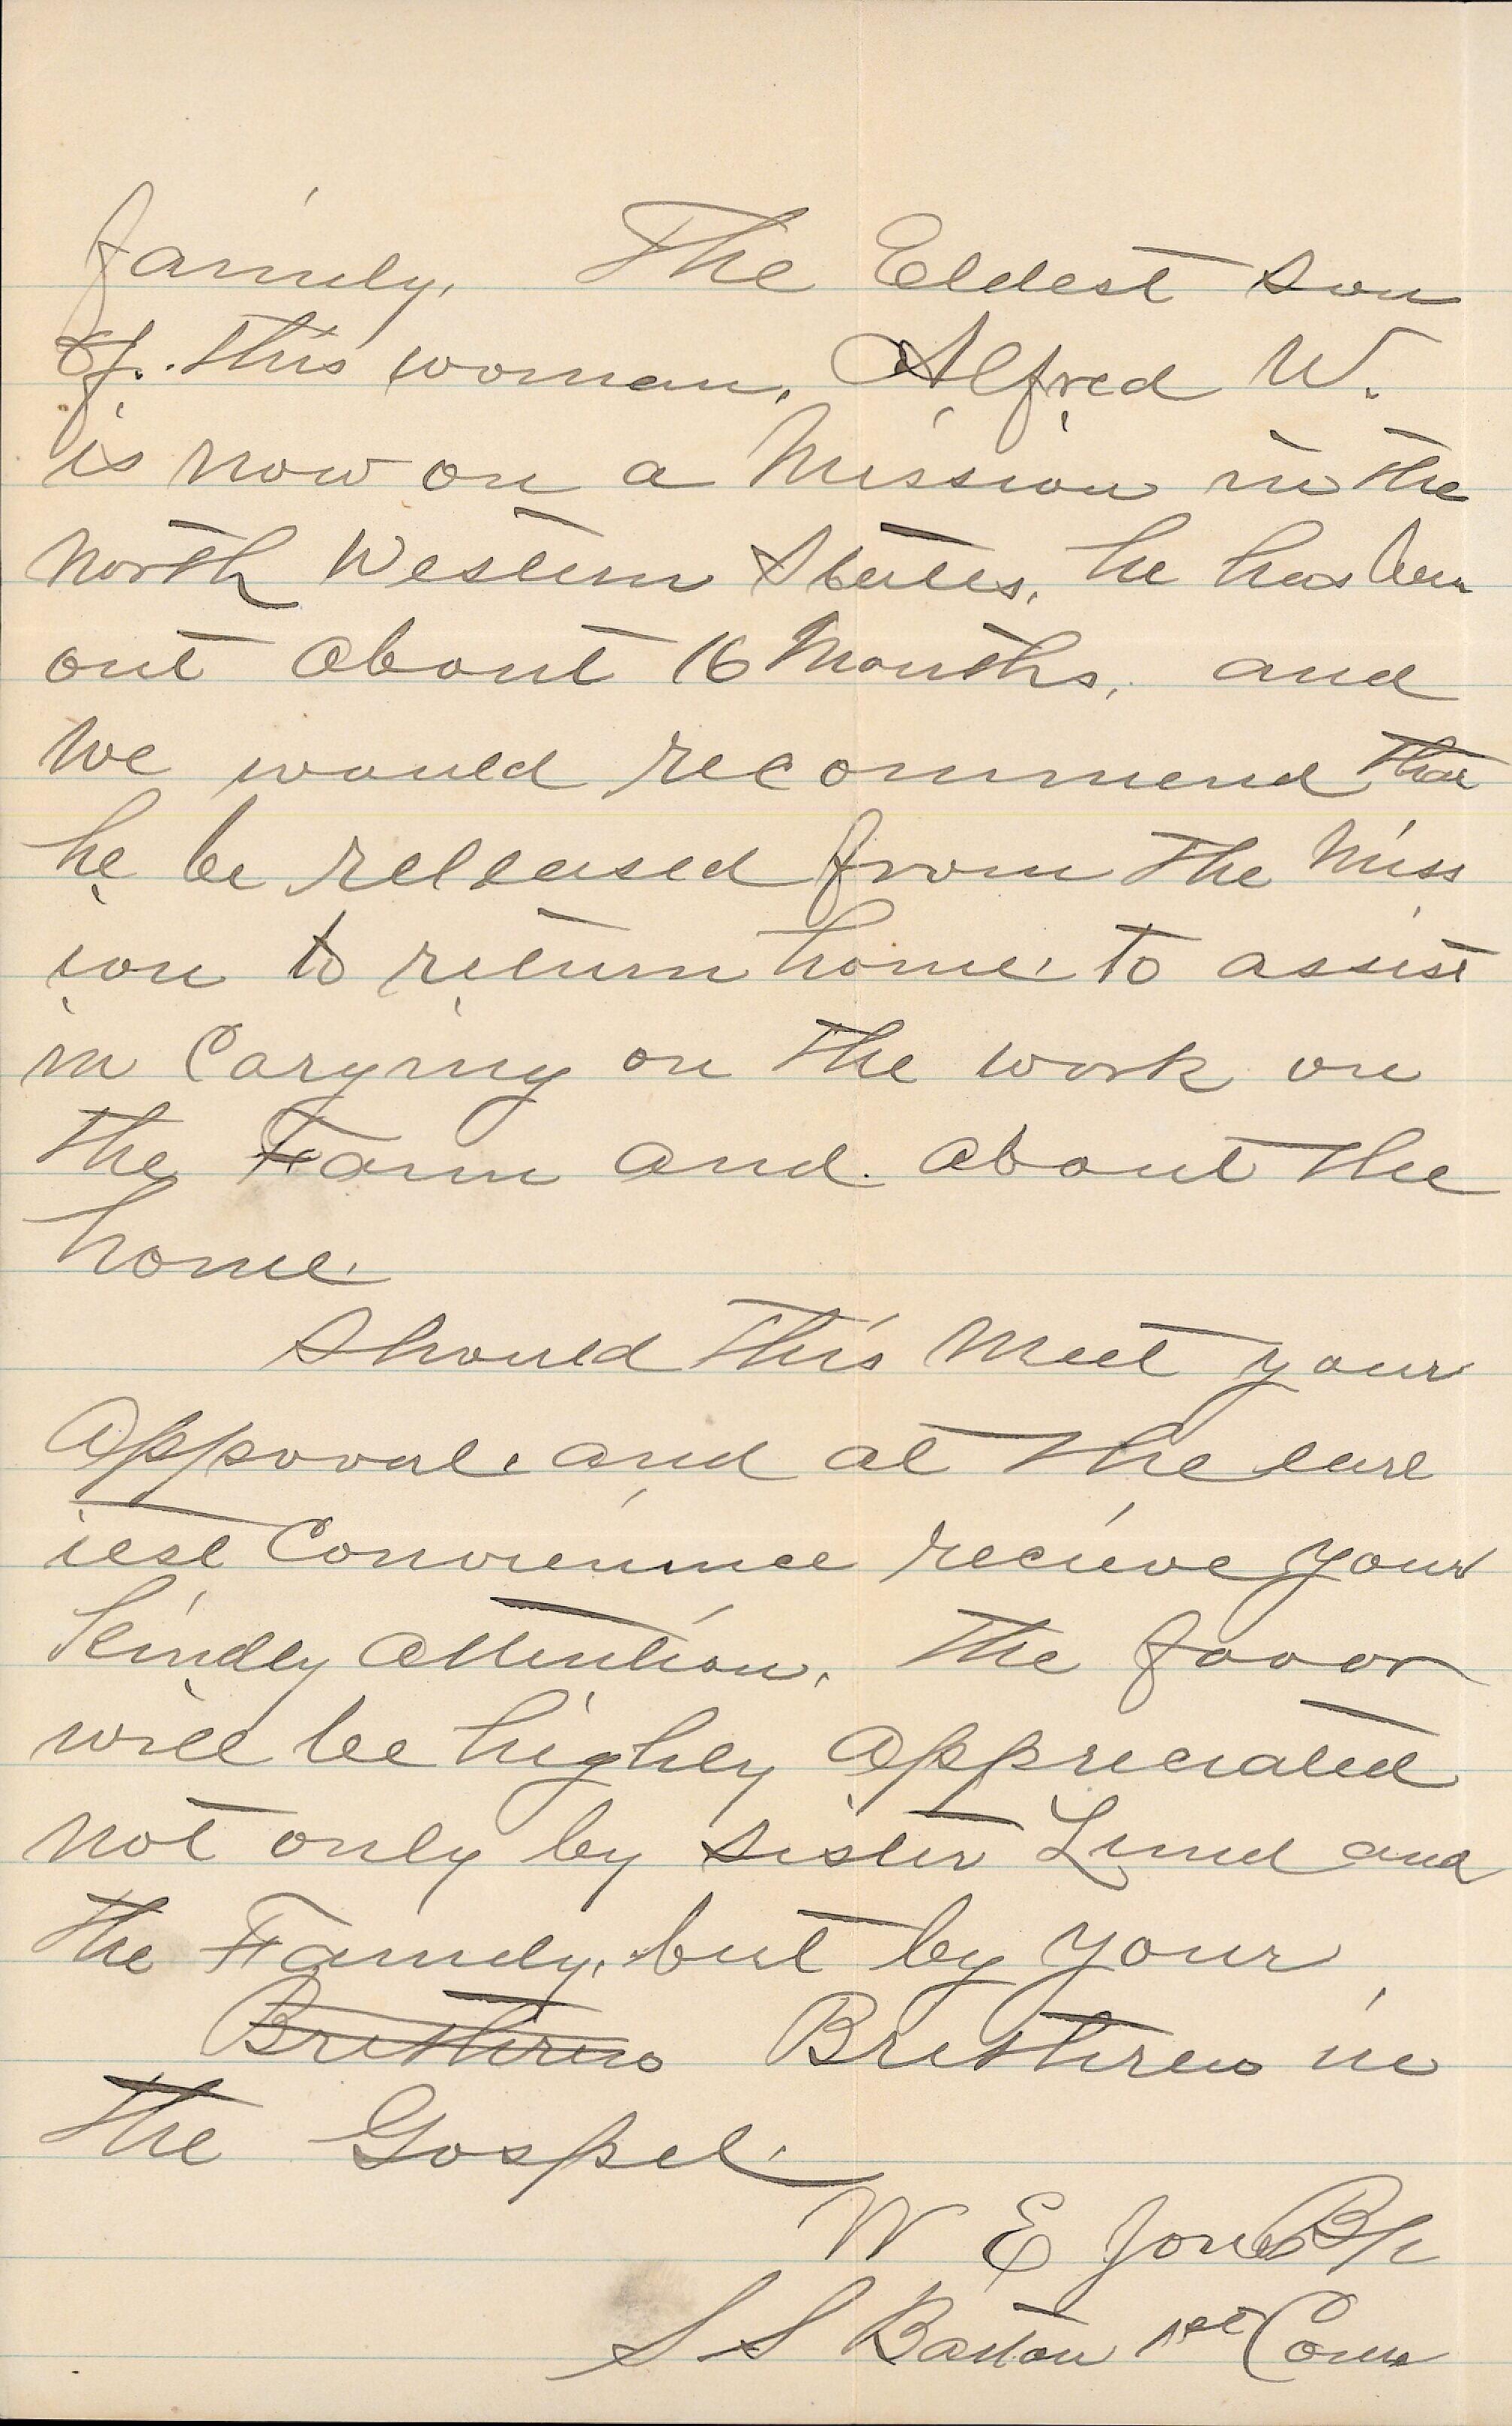 family. The Eldest son
of this woman, Alfred W.
is now on a Mission in the
North Western States, he has been
out about 16 Months, and
We would recommend that
he be released from the Miss
ion to return home to assist
in Carying on the work on
the Farm and about the
home.
Should this Meet your
Approval, and at the earl
iest Convenience recieve your
kindly attention, the favor
will be highly appreciated
not only by sister Lund and
the Family, but by your
Brethren Brethren in
the Gospel.
W E Jones Bp
S S Barton 1st Coun